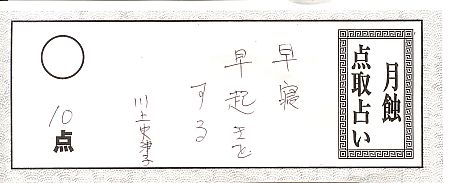 月蝕
点取占い
早寝
早起きを
する
川上史津子
10
点